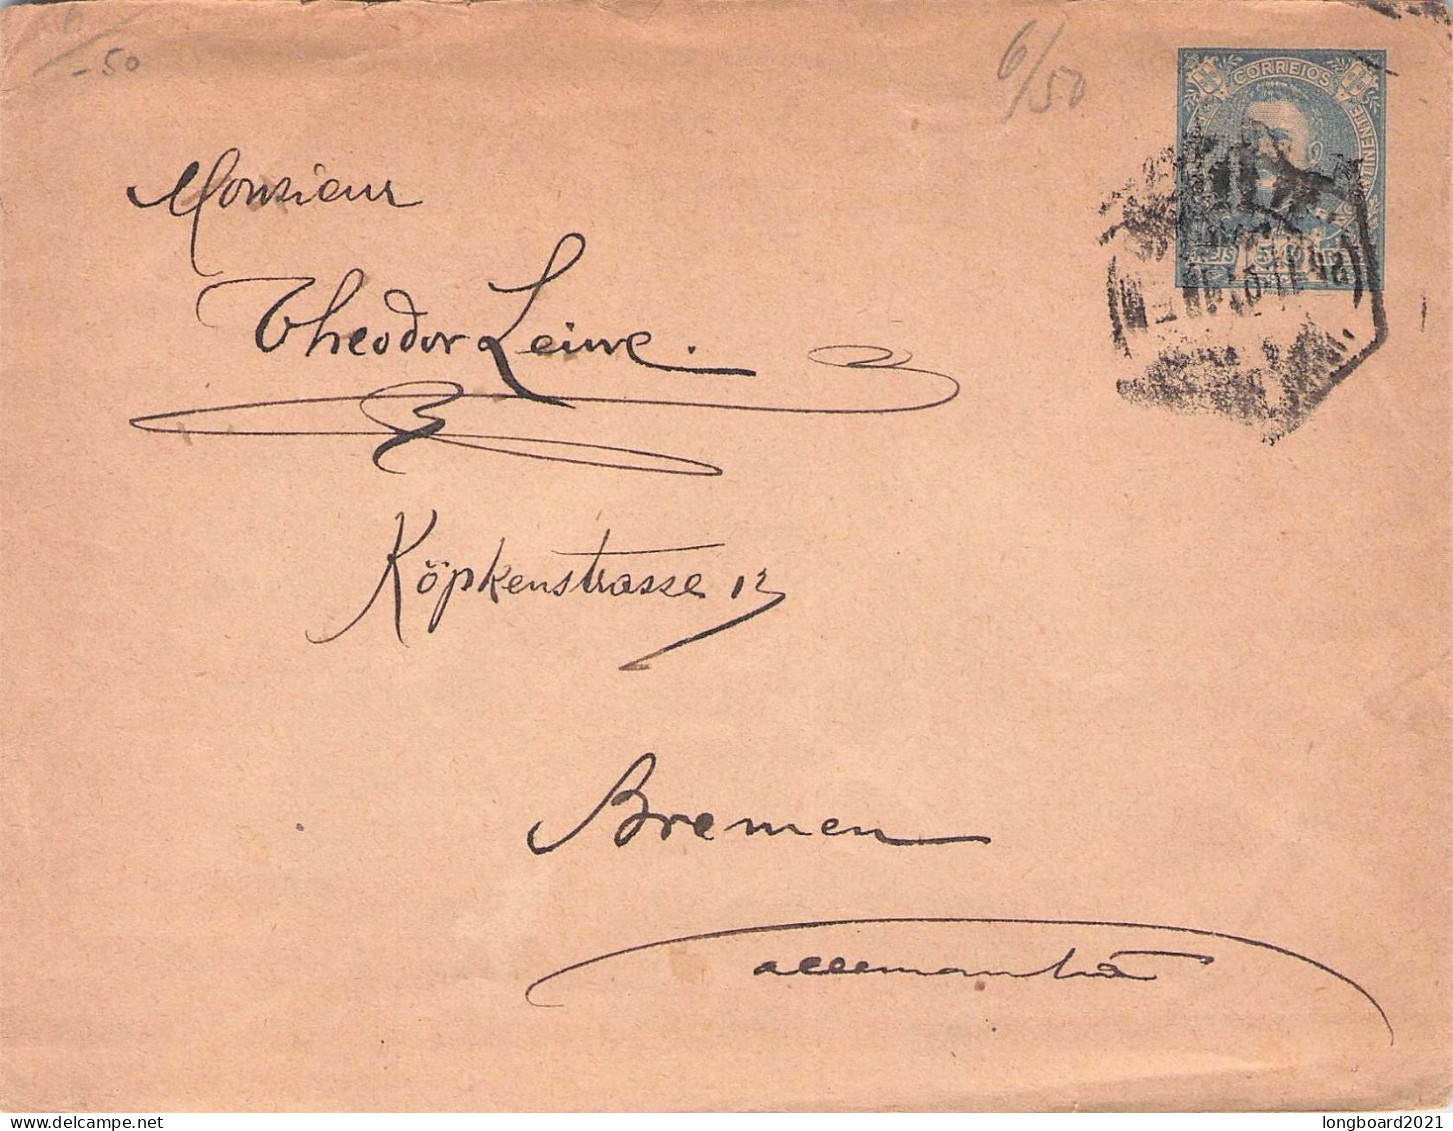 6/-50
6/50
CORREIOS
REIS 50
Monsieur
Theodor Leiwe.
Köpkenstrasse 12
Bremen
allemanha
longboard2021